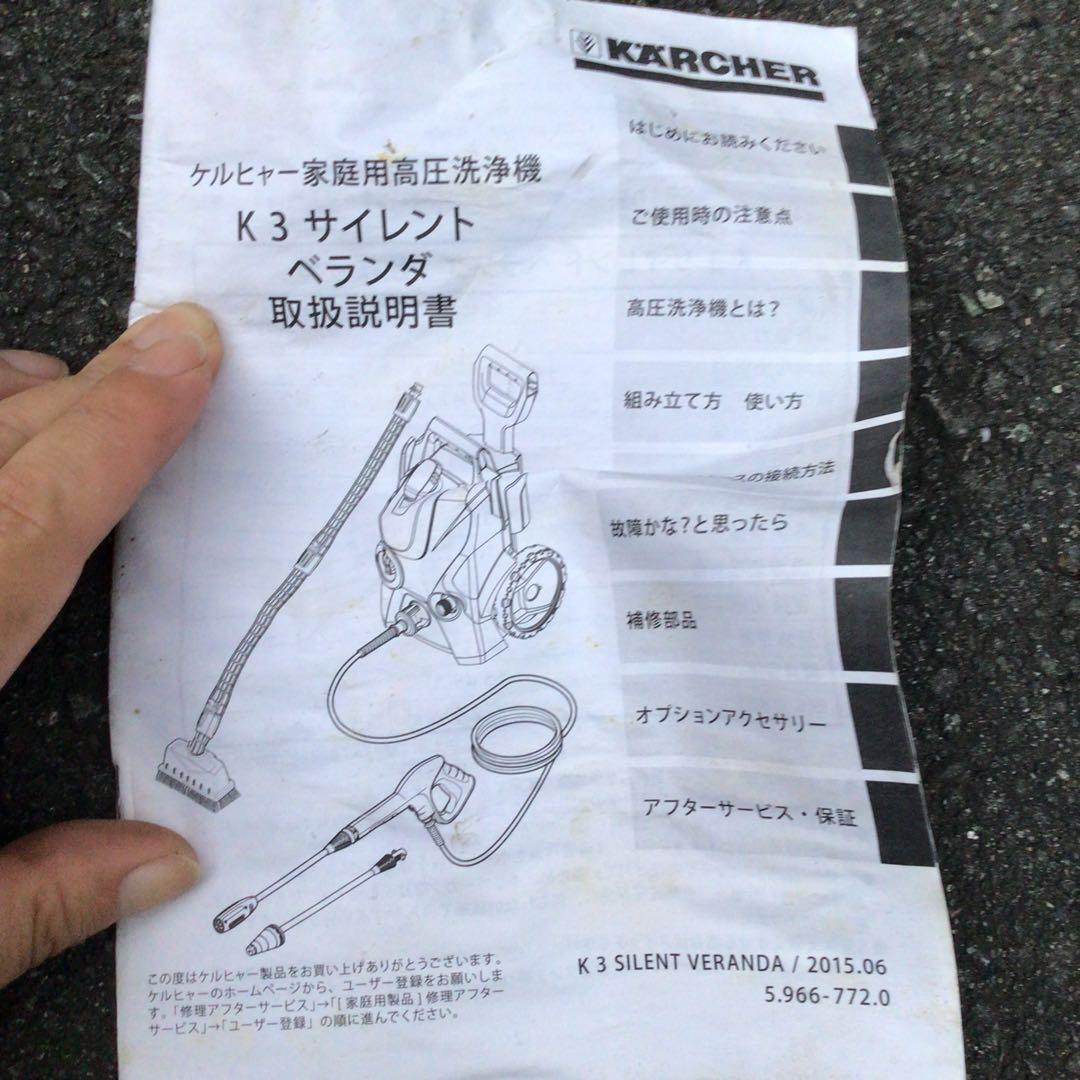 KÄRCHER
ケルヒャー家庭用高圧洗浄機
K 3 サイレント
ベランダ
取扱説明書
はじめにお読みください
ご使用時の注意点
高圧洗浄機とは?
組み立て方 使い方
の接続方法
故障かな?と思ったら
補修部品
オプションアクセサリー
アフターサービス・保証
この度はケルヒャー製品をお買い上げありがとうございます。
ケルヒャーのホームページから、ユーザー登録をお願いしま
す。「修理アフターサービス」→「[ 家庭用製品 ] 修理アフター
サービス」→「ユーザー登録」の順に進んでください。
K 3 SILENT VERANDA / 2015.06
5.966-772.0